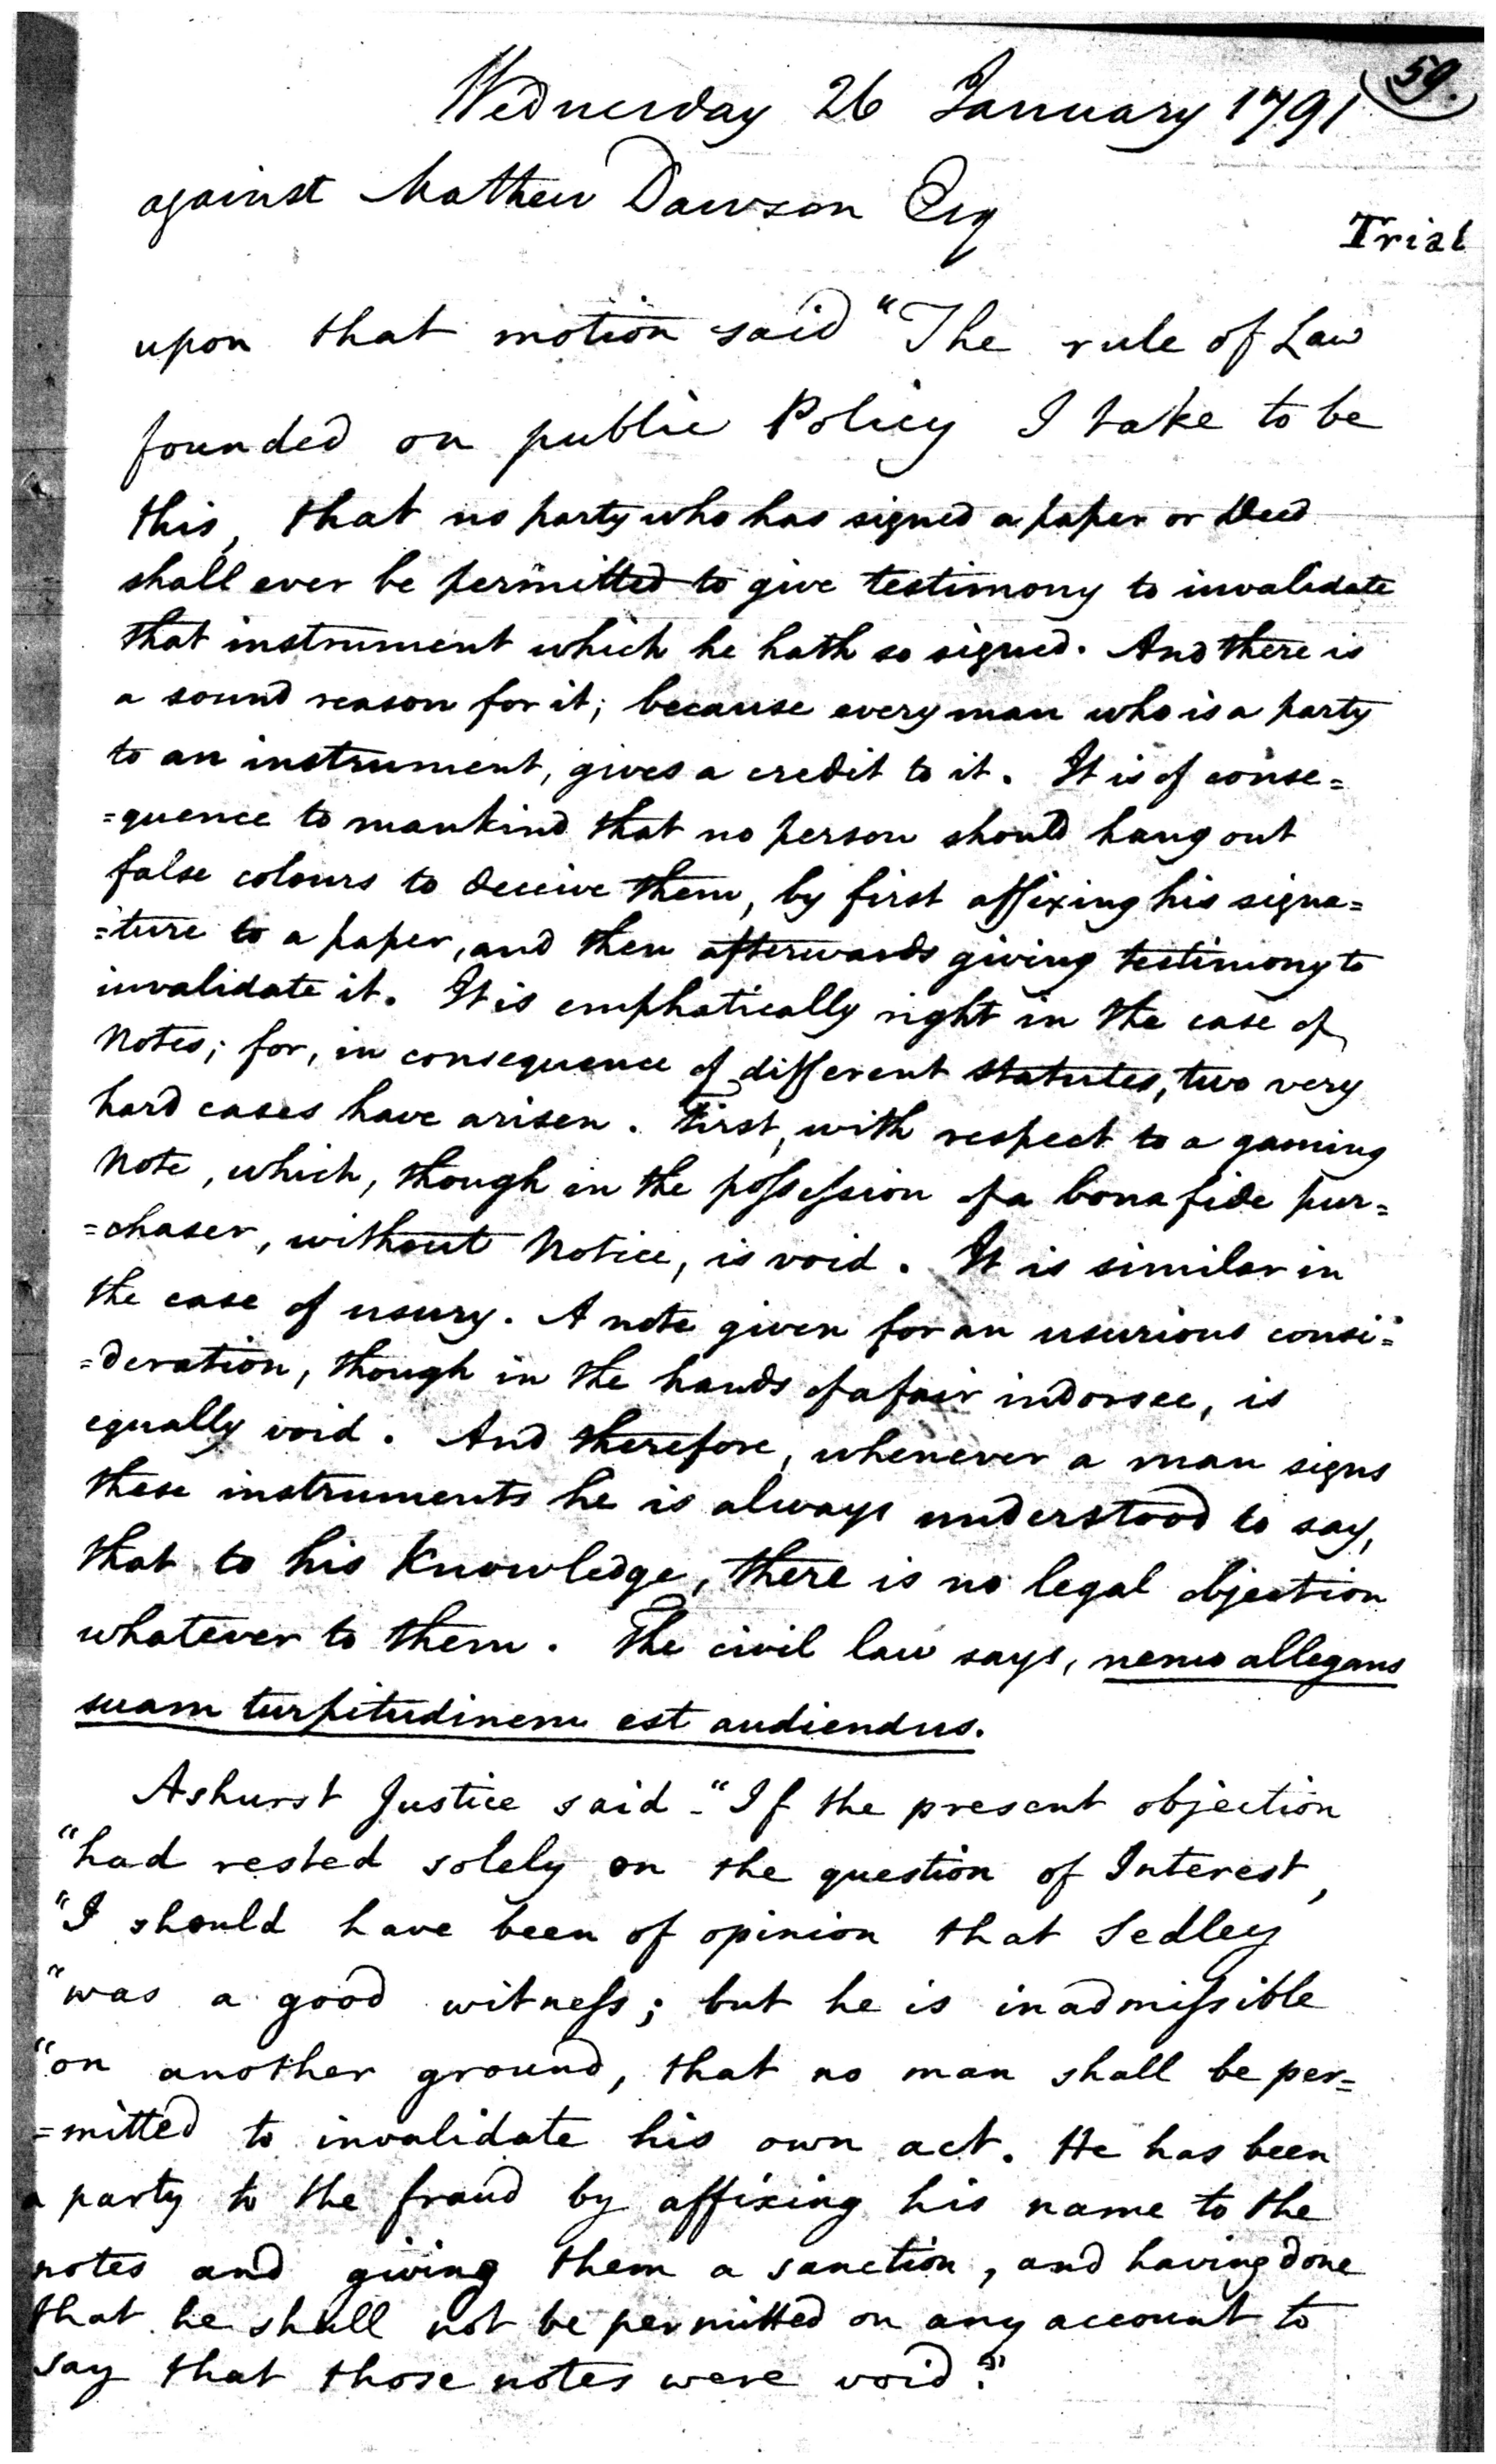 59.
Wednesday 26 January 1791
against Mathew Dawson Esq
Trial
upon that motion said "The rule of Law
founded on public Policy I take to be
this, that no party who has signed a paper or Deed
shall ever be permitted to give testimony to invalidate
that instrument which he hath so signed. And there is
a sound reason for it; because every man who is a party
to an instrument, gives a credit to it. It is of conse=
=quence to mankind that no person should hang out
false colours to deceive them, by first affixing his signa=
=ture to a paper, and then afterwards giving testimony to
invalidate it. It is emphatically right in the case of
Notes; for, in consequence of different statutes, two very
hard cases have arisen. First, with respect to a gaming
Note, which, though in the possession of a bona fide pur=
=chaser, without Notice, is void. It is similar in
the case of usury. A note given for an usurious consi=
=deration, though in the hands of a fair indorsee, is
equally void. And therefore, whenever a man signs
these instruments he is always understood to say,
that to his Knowledge, there is no legal objection
whatever to them. The civil law says, nemo allegans
suam turpitudinem est audiendus.
Ashurst Justice said - "If the present objection
"had rested solely on the question of Interest,
"I should have been of opinion that Sedley
"was a good witness; but he is inadmissible
"on another ground, that no man shall be per=
=mitted to invalidate his own act. He has been
a party to the fraud by affixing his name to the
notes and giving them a sanction, and having done
that he shall not be permitted on any account to
say that those notes were void."